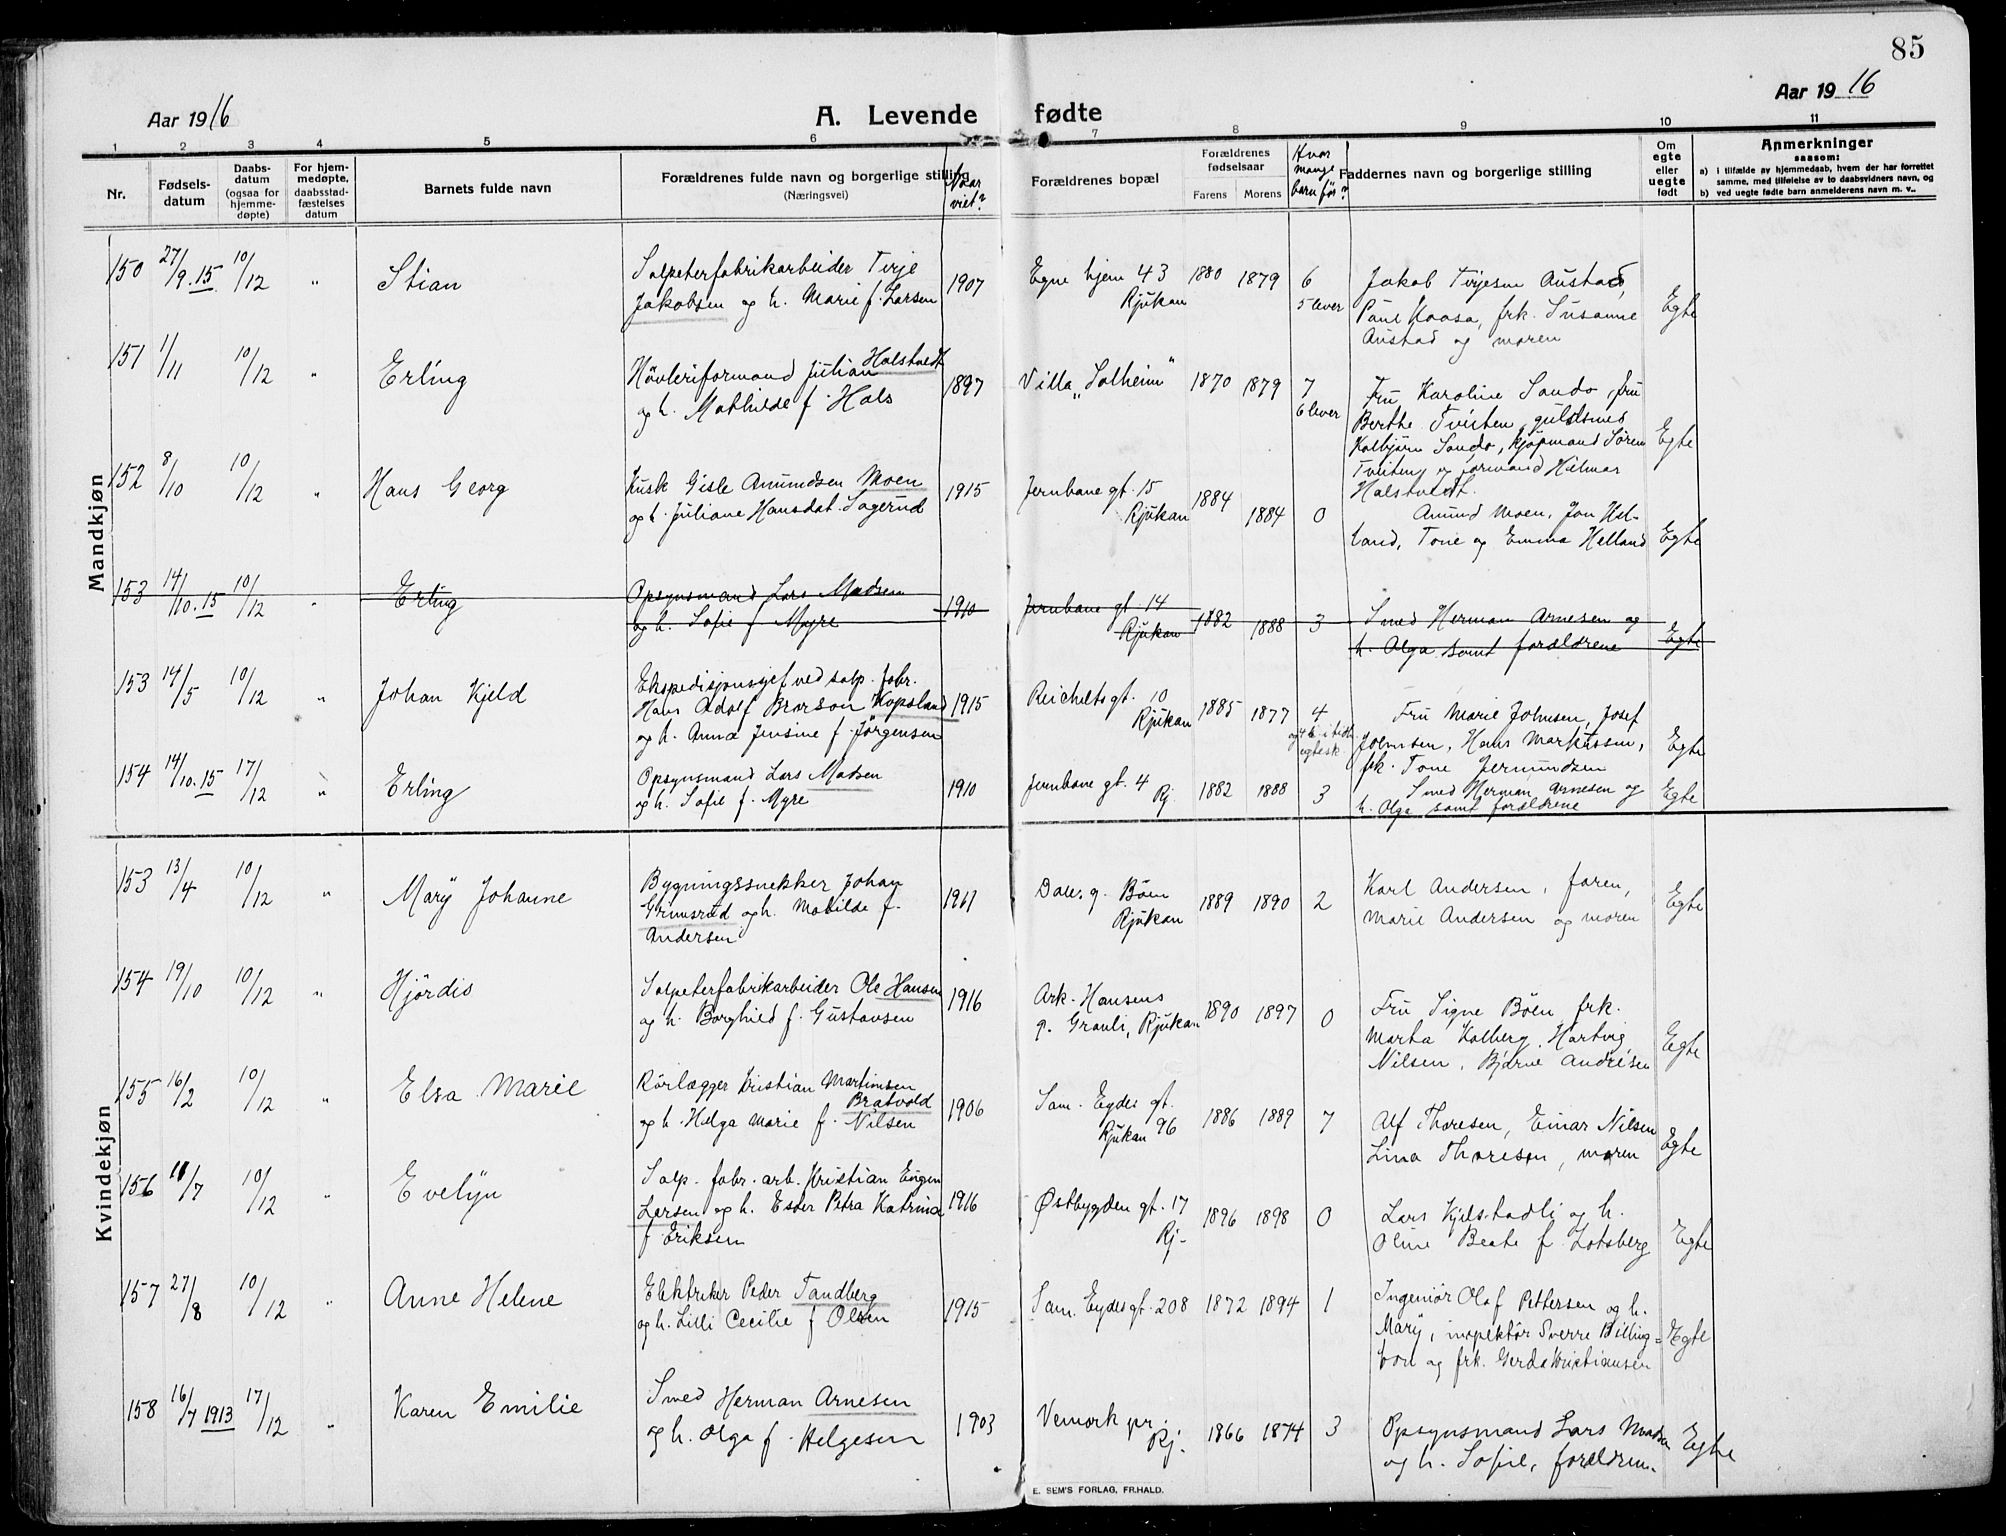 85
Aar 1916
A. Levende fødte
Aar 1916
1 2 3 4 5 6 7 8 9 10 11
Nr.
Fødsels-
datum
Daabs-
datum
(ogsaa for
hjemme-
døpte)
For hjem-
medøpte,
daabsstad-
fæstelses
datum
Barnets fulde navn
Forældrenes fulde navn og borgerlige stilling
(Næringsvei)
Naar
viet?
Forældrenes bopæl
Forældrenes
fødselsaar
Farens Morens
Hvor
mange
barn før?
Faddernes navn og borgerlige stilling
Om
egte
eller
uegte
født
Anmerkninger
saasom:
a) i tilfælde av hjemmedaab, hvem der har forrettet
samme, med tilføielse av to daabsvidners navn, og
b) ved uegte fødte barn anmelderens navn m. v..
Mandkjøn
150 27/9.15 10/12 " Stian
Salpeterfabrikarbeider Terje
Jakobsen og h. Marie f. Larsen
1907
Egne hjem 43
Rjukan
1880 1879 6
5 lever
Jakob Terjesen Austad,
Paul Kaasa, frk. Susanne
Austad og moren
Egte
151 1/11 10/12 " Erling
Høvleriformand Julian Halstvedt
og h. Mathilde f. Hals
1897
Villa „Solheim"
1870 1879 7
6 lever
Fru Karoline Sando, fru
Berthe Tveiten, guldsmed
Kolbjørn Sando, kjøpmand Søren
Tveiten og formand Hilmar
Halstvedt.
Egte
152 8/10 10/12 " Hans Georg
Kusk Gisle Amundsen Moen
og h. Juliane Hansdat. Sagerud
1915
Jernbane gt. 15
Rjukan
1884 1884 0
Amund Moen, Jon Hel-
land, Tone og Emma Helland
Egte
153 14/10.15 10/12 " Erling
Opsynsmand Lars Madsen
og h. Sofie f. Myre
1910
Jernbane gt. 14
Rjukan
1882 1888 3
Smed Herman Arnesen og
h. Olga samt forældrene
Egte
153 14/5 10/12 " Johan Kjeld
Ekspedisjonsgef ved salp. fabr.
Hans Adolf Brorson Kopsland
og h. Anna Jensine f. Jørgensen
1915
Reichelts gt. 10
Rjukan
1885 1877 4
Fru Marie Johnsen, Josef
Johnsen, Hans Markussen,
frk. Tone Jermundsen
Egte
154 14/10.15 17/12 " Erling
Opsynsmand Lars Madsen
og h. Sofie f. Myre
1910
Jernbane gt. 4 Rj.
1882 1888 3
Smed Herman Arnesen og
h. Olga samt forældrene
Egte
Kvindekjøn
153 13/4 10/12 " Marÿ Johanne
Bygningssnekker Johan
Grimsrud og h. Matilde f.
Andersen
1911
Dales g. Bøen
Rjukan
1889 1890 2
Karl Andersen, faren,
Marie Andersen og moren
Egte
154 19/10 10/12 " Hjördis
Salpeterfabrikarbeider Ole Hansen
og h. Borghild f. Gustavsen
1916
Ark. Hansens
g. Granli, Rjukan
1890 1897 0
Fru Signe Bøen, frk.
Marta Kolberg, Hartvig
Nilsen, Bjarne Andresen
Egte
155 16/2 10/12 " Elsa Marie
Rørlægger Kristian Martinsen
Bratvold
og h. Helga Marie f. Nilsen
1906
Sam. Eydes gt.
Rjukan 96
1886 1889 7
Alf Thoresen, Einar Nilsen
Lina Thoresen, moren
Egte
156 11/7 10/12 " Evelÿn
Salp. fabr. arb. Kristian Eugen
Larsen og h. Ester Petra Katrine
f. Eriksen
1916
Østbygden gt. 17
Rj.
1896 1898 0
Lars Kjelstadli og h.
Oline Beate f. Lotsberg
Egte
157 27/8 10/12 " Anne Helene
Elektriker Peder Tandberg
og h. Lilli Cecilie f. Olsen
1915
Sam. Eydes gt. 208
1872 1894 1
Ingeniør Olaf Pettersen og h.
Marÿ, inspektør Sverre Billing-
ton og frk. Gerda Kristiansen
Egte
158 16/7 1913 17/12 " Karen Emilie
Smed Herman Arnesen
og h. Olga f. Helgesen
1903
Vemork pr.
Rj.
1866 1874 3
Opsynsmand Lars Madsen
og h. Sofie, forældrene
Egte
E. SEM'S FORLAG, FR.HALD.